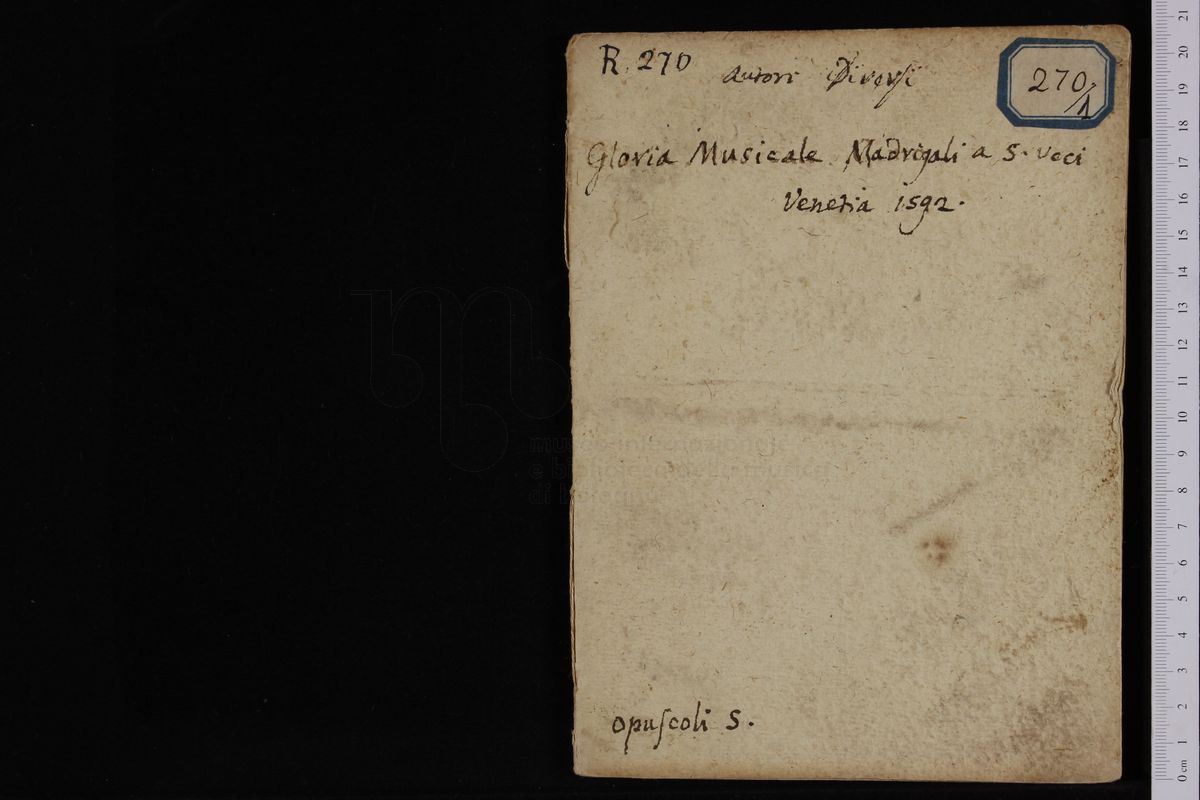 R. 270
Autori Diversi
270/1
Gloria Musicale Madrigali a 5. voci
Venetia 1592.
opuſcoli 5.
21
20
19
18
17
16
15
14
13
12
11
10
9
8
7
6
5
4
3
2
1
0 cm